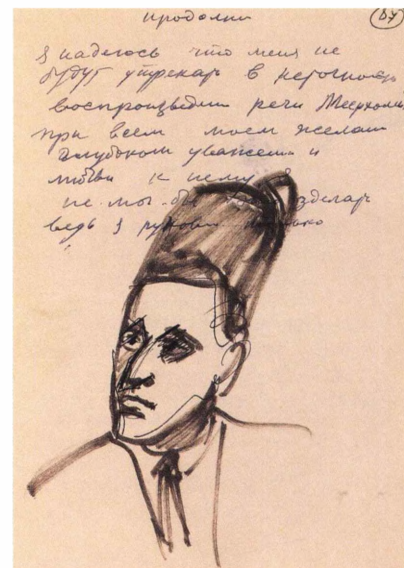 продолжи (БУ)
Я надеюсь что меня не
будут упрекать в неточность
воспроизведении речи Меерхоль
при всем моем желании
глубоком уважении и
любви к нему я
не мог бы зделать
ведь я рукови